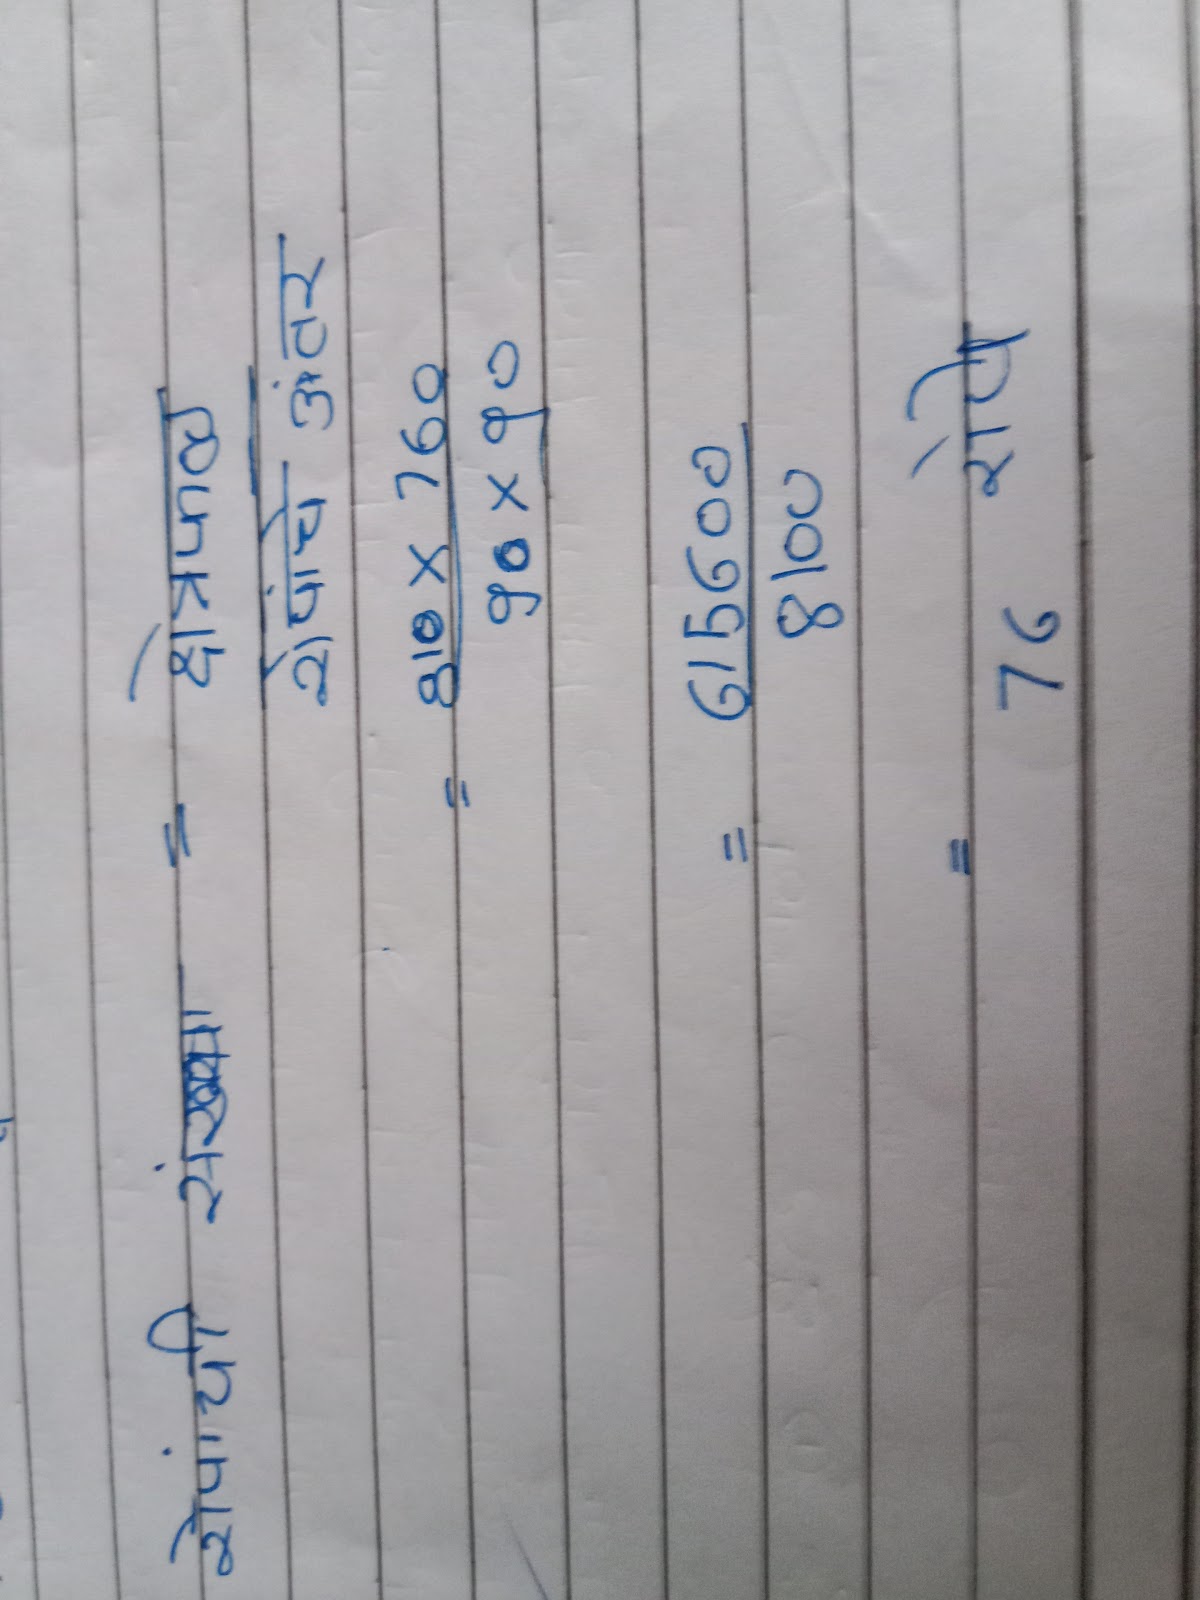 रोपांची संख्या = क्षेत्रफळ
रोपांचे अंतर
= 810 x 760
90 x 90
= 615600
8100
= 76 रोपे